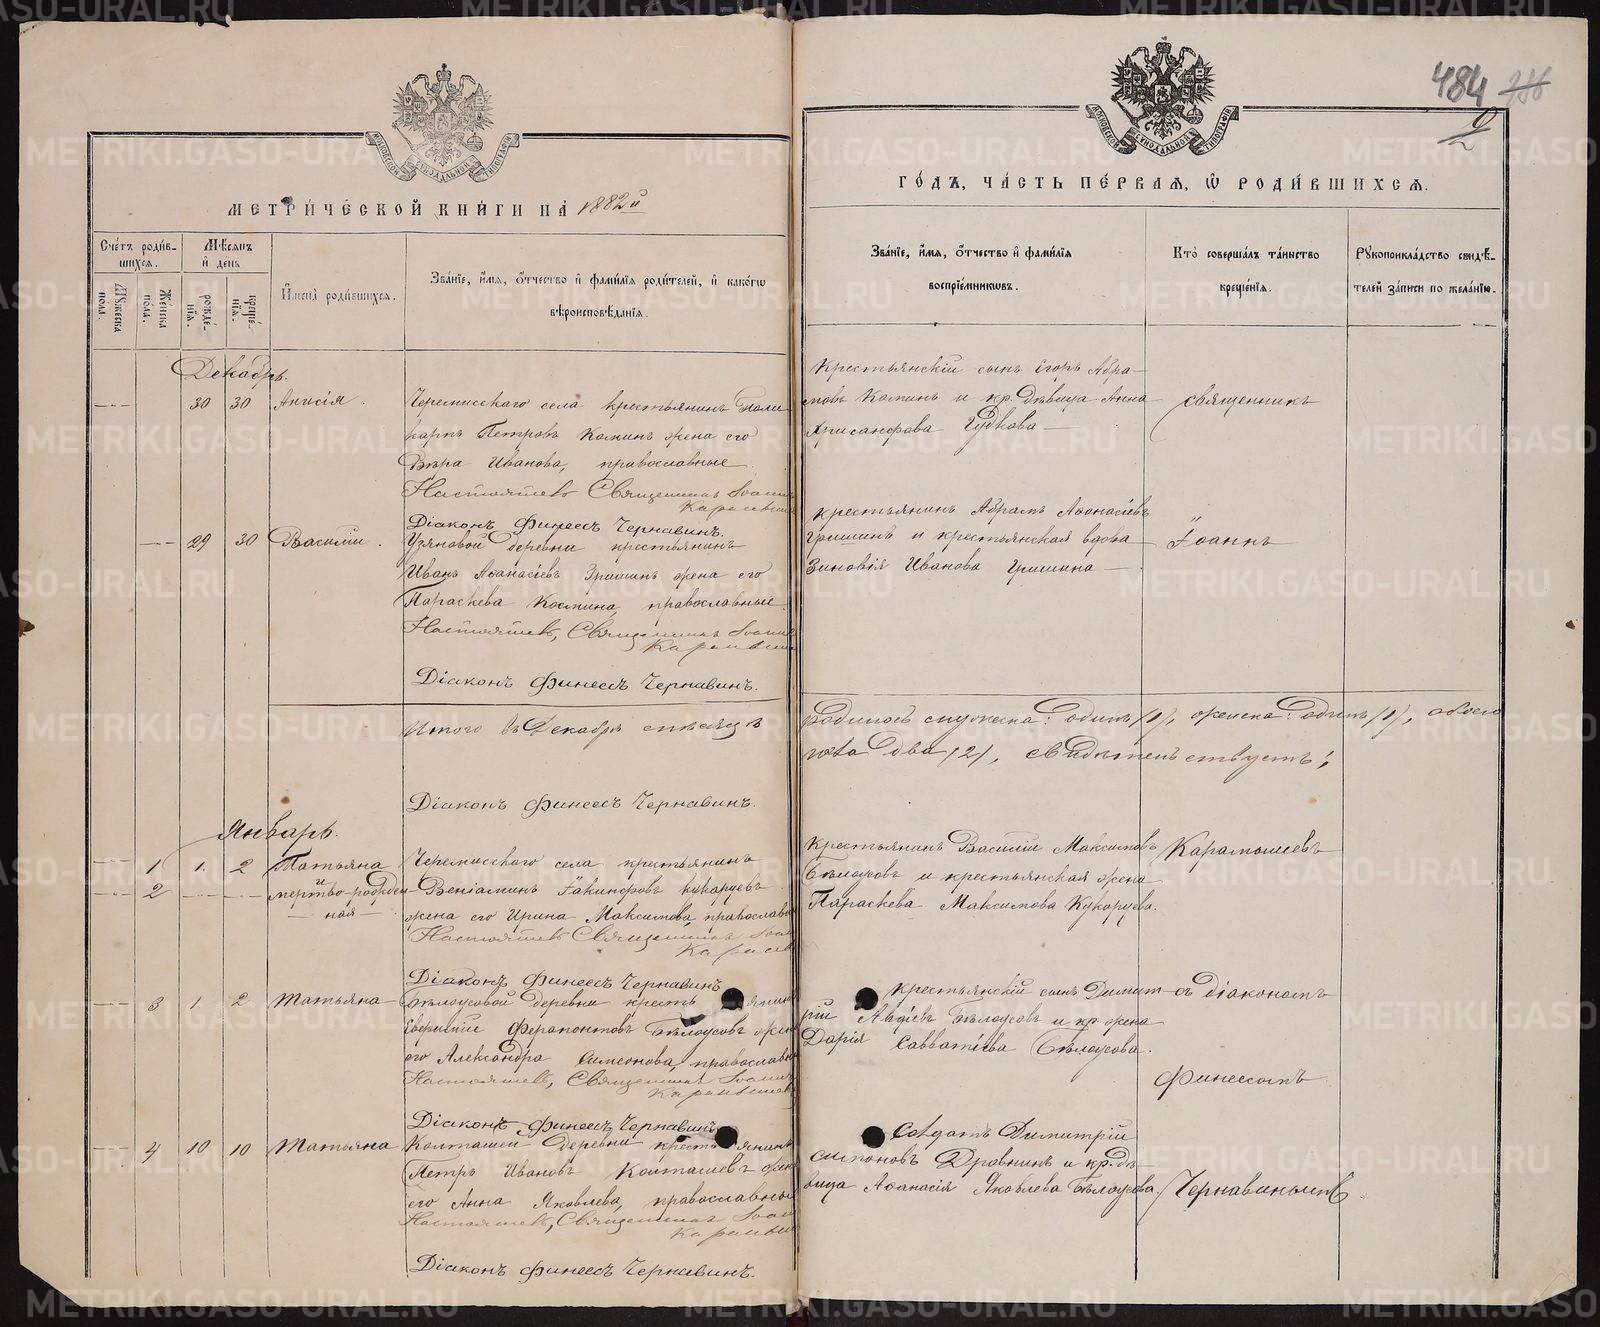 484
2
МОСКОВСКОЙ СѴНОДАЛЬНОЙ ТИПОГРАФІИ
МОСКОВСКОЙ СѴНОДАЛЬНОЙ ТИПОГРАФІИ
МЕТРИ́ЧЕСКОЙ КНИ́ГИ НА̀ 1882й
ГО́ДЪ, ЧА́СТЬ ПЕ́РВАЯ, Ѡ РОДИ́ВШИХСЯ.
Сче́тъ роди́в-
шихся.
Мѣ́сяцъ
и҆ де́нь
Му́жеска
по́ла.
Же́нска
по́ла.
рожде́-
нїя.
креще́-
нїя.
И҆мена̀ роди́вшихся.
Зва́нїе, и҆́мя, о҆́тчество и҆ фами́лїя роди́телей, и҆ како́гѡ
вѣроисповѣ́данїя.
Зва́нїе, и҆́мя, о҆́тчество и҆ фами́лїя
воспрїе́мникѡвъ.
Кто̀ соверша́лъ та́инство
креще́нїя.
Рꙋкоприкла́дство свидѣ́-
телей за́писи по жела́нїю.
Декабрь.
30 30 Анисія.
Черемисскаго села крестьянинъ Поли
карпъ Петровъ Коминъ жена его
Вѣра Иванова, православные
Настоятель Священникъ Іоаннъ
Діаконъ Финеесъ Чернавинъ.
Крестьянскій сынъ Егоръ Абра-
мовъ Коминъ и кр. дѣвица Анна
Хрисанфова Гудкова
священникъ
29 30 Василій.
Узяновой деревни крестьянинъ
Иванъ Аѳанасіевъ Гришинъ жена его
Параскева Космина, православные
Настоятель, Священникъ Іоаннъ
Діаконъ Финеесъ Чернавинъ.
Крестьянинъ Абрамъ Аѳанасіевъ
Гришинъ и крестьянская вдова
Зиновія Иванова Гришина
Іоаннъ
Итого въ Декабрѣ мѣсяцѣ
родилось мужеска: одинъ /1/, женска: одинъ /1/, обоего
пола два /2/, свидѣтельствуетъ:
Діаконъ Финеесъ Чернавинъ.
Январь.
1 1. 2 Татьяна
2 и мертво-рожден
ная
Черемисскаго села крестьянинъ
Веніаминъ Іакинфовъ Кукарцевъ
жена его Ирина Максимова, православн
Настоятель Священникъ
Діаконъ Финеесъ Чернавинъ
Крестьянинъ Василій Максимовъ
Бѣлоусовъ и крестьянская жена
Параскева Максимова Кукарцева.
Карамышевъ
3 1 2 Татьяна
Бѣлоусовой деревни кресть янинъ
Ферапонтовъ Бѣлоусовъ жен
его Александра Симеонова, православн
Настоятель, Священникъ Іоаннъ
Діаконъ Финеесъ Чернавинъ
крестьянскій сынъ Димит-
рій Авдіевъ Бѣлоусовъ и кр жена
Дарія Савватіева Бѣлоусова.
съ діакономъ
Финеесомъ
4 10 10 Татьяна
Колташей деревни кресть янинъ
Петръ Ивановъ Колташевъ жен
его Анна Яковлева, православны
Настоятель, Священникъ
Діаконъ Финеесъ Чернавинъ.
Солдатъ Димитрій
Древнинъ и кр. дѣ-
вица Аѳанасія Яковлева Бѣлоусова.
Чернавинымъ.
METRIKI.GASO-URAL.RU